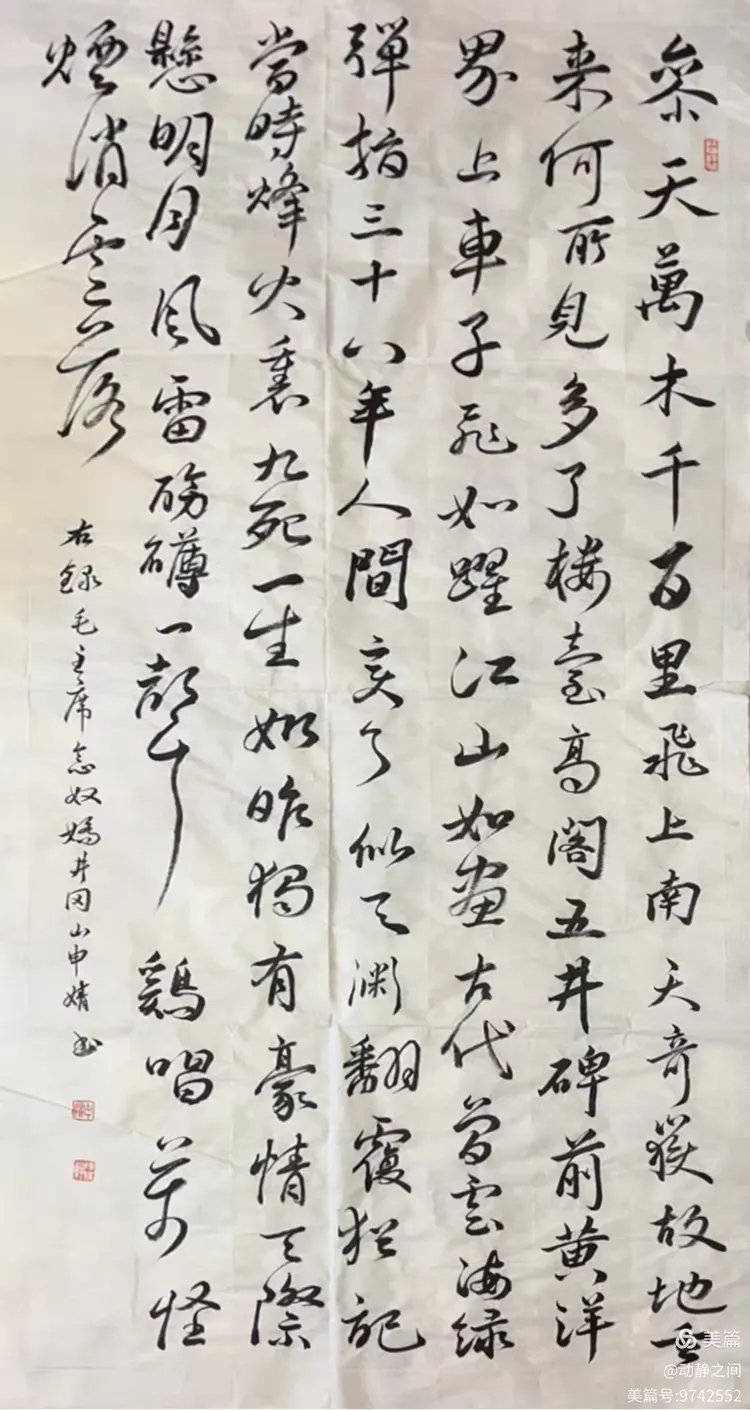 參天萬木千百里飛上南天奇嶽故地重
来何所見多了楼臺高閣五井碑前黄洋
界上車子飛如躍江山如畫古代曾雲海緑
彈指三十八年人間变了似天渊翻覆犹記
當時烽火裏九死一生如昨獨有豪情天際
懸明月風雷磅礴一声鷄唱萬怪
煙消雲落
右録毛主席念奴嬌井岡山申婧书
美篇
@动静之间
美篇号:9742552